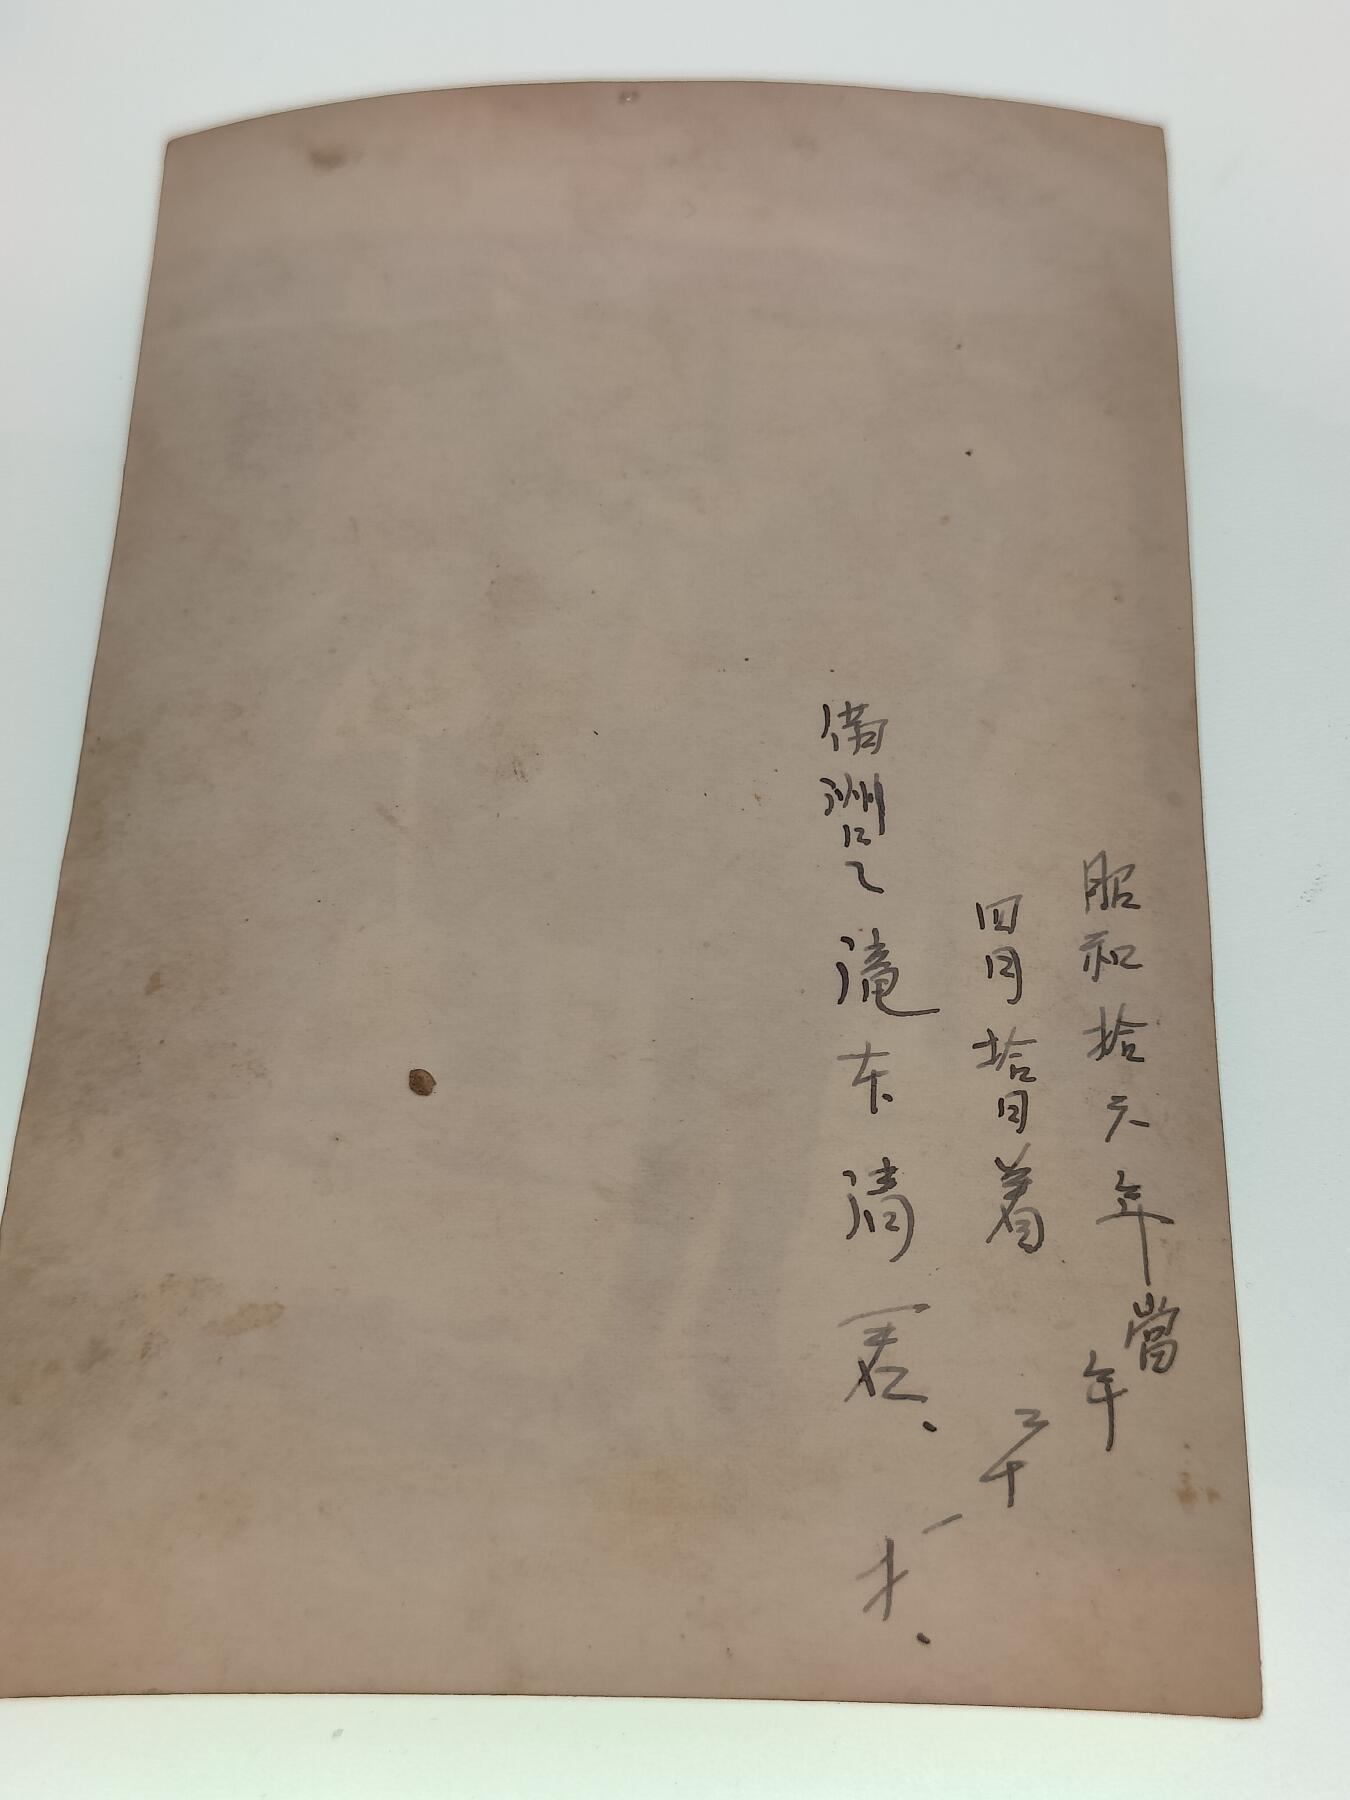 昭和拾六年當年
四月拾日着二十
満洲ニテ滝本清君、一才、